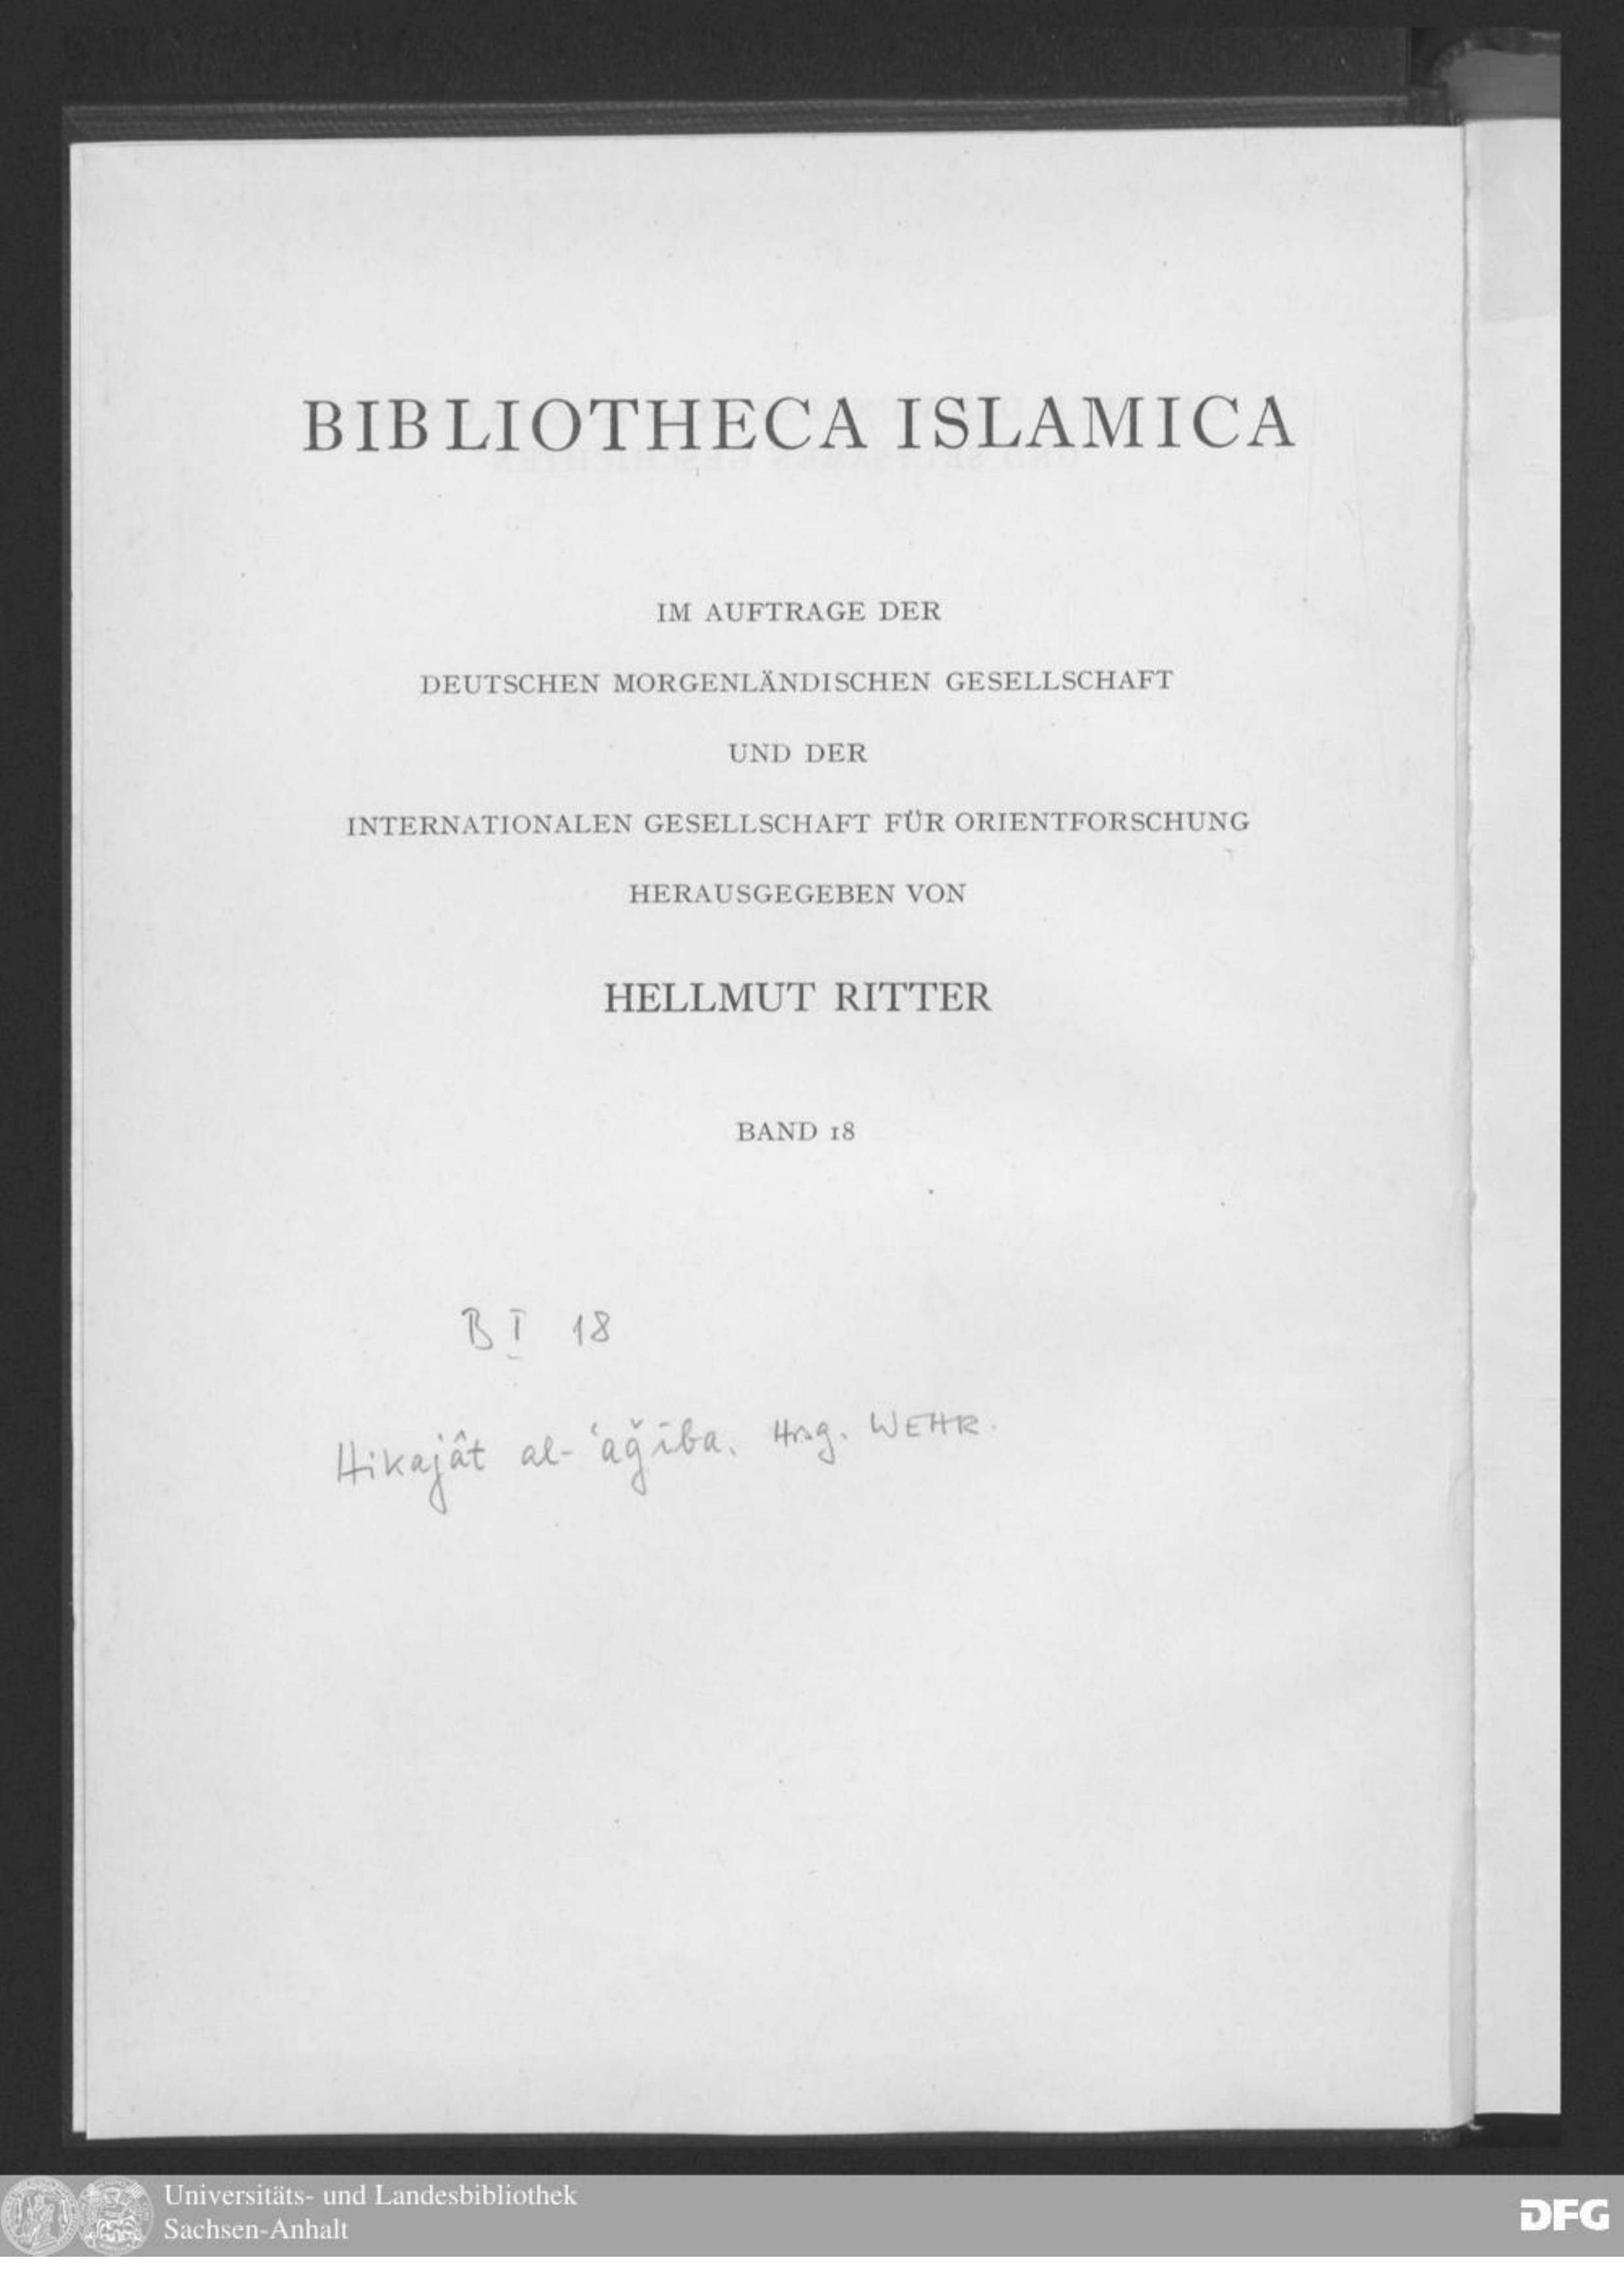 BIBLIOTHECA ISLAMICA
IM AUFTRAGE DER
DEUTSCHEN MORGENLÄNDISCHEN GESELLSCHAFT
UND DER
INTERNATIONALEN GESELLSCHAFT FÜR ORIENTFORSCHUNG
HERAUSGEGEBEN VON
HELLMUT RITTER
BAND 18
B I 18
Hikajât al-ʿaǧība. Hrsg. WEHR.
Universitäts- und Landesbibliothek
Sachsen-Anhalt
DFG